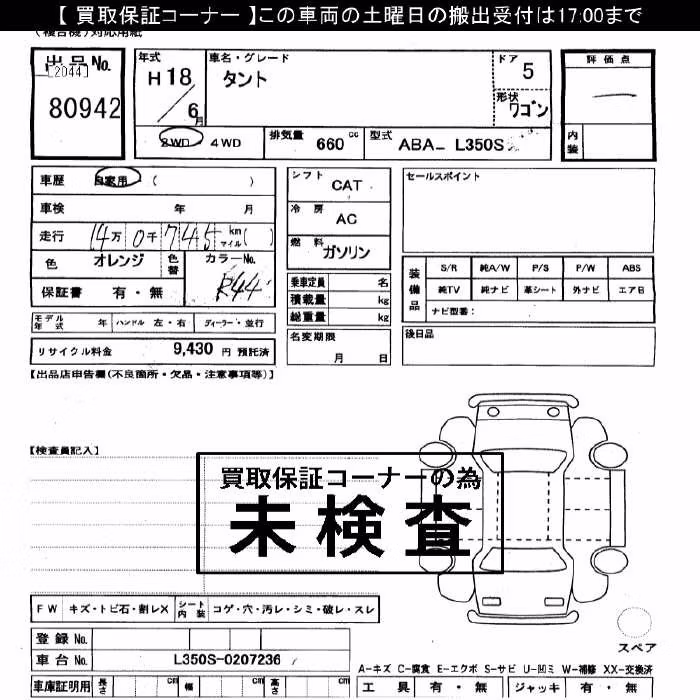 【 買取保証コーナー 】この車両の土曜日の搬出受付は17:00まで
(複合機)対応用紙
出品No.
[2044]
80942
年式
H 18
6月
車名・グレード
タント
ドア 5
形状 ワゴン
評価点
内装
2WD ・ 4WD
排気量 660 cc
型式 ABA- L350S
車歴 自家用 ( )
車検 年 月
走行 14万 0千 745 km マイル ( )
色 オレンジ 色替 カラーNo.
R44
保証書 有・無
モデル年式 年 ハンドル 左・右 ディーラー・並行
リサイクル料金 9,430 円 預託済
シフト CAT
冷房 AC
燃料 ガソリン
乗車定員 名
積載量 kg
総重量 kg
名変期限
月 日
セールスポイント
装備品
S/R 純A/W P/S P/W ABS
純TV 純ナビ 革シート 外ナビ エアB
ナビ型番：
後日品
【出品店申告欄(不良箇所・欠品・注意事項等)】
【検査員記入】
買取保証コーナーの為
未検査
FW キズ・トビ石・割レX シート内装 コゲ・穴・汚レ・シミ・破レ・スレ
登録No.
車台No. L350S-0207236
車庫証明用 長さ cm 幅 cm 高さ cm
スペア
A-キズ C-腐食 E-エクボ S-サビ U-凹ミ W-補修 XX-交換済
工具 有・無 ジャッキ 有・無